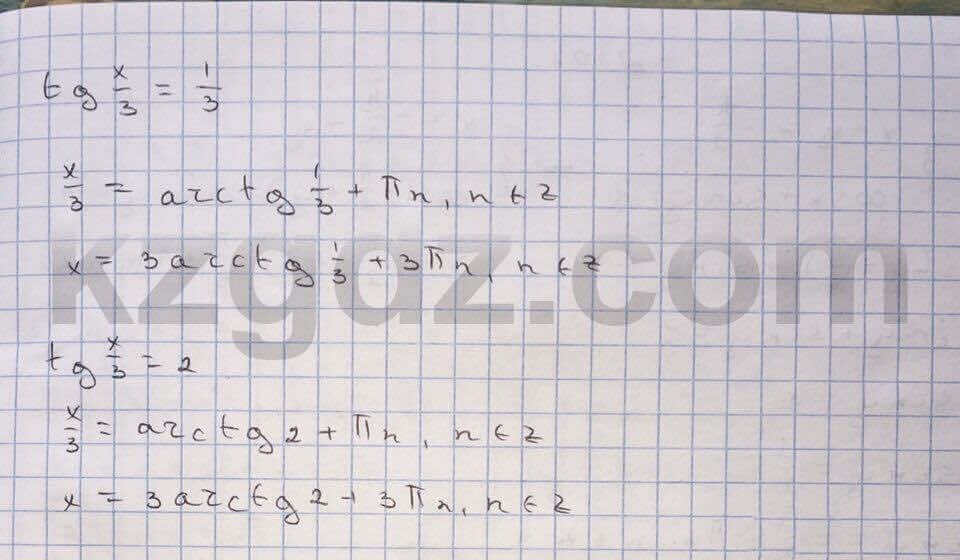 tg x/3 = 1/3
x/3 = arctg 1/3 + πn, n ∈ z
x = 3arctg 1/3 + 3πn, n ∈ z
kzgdz.com
tg x/3 = 2
x/3 = arctg 2 + πn, n ∈ z
x = 3arctg 2 + 3πn, n ∈ z